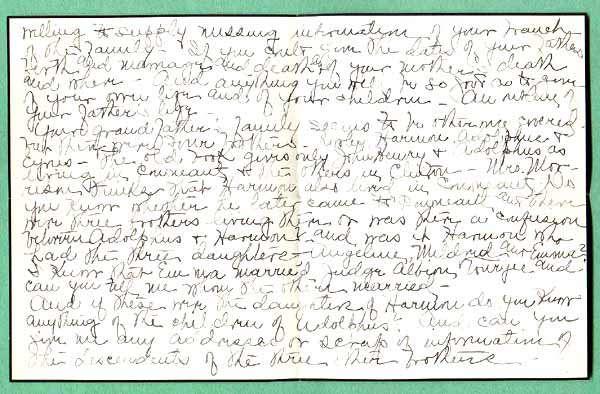 willing to supply missing information of your branch
of the Family - If you could give the date of your Father's
birth and marriage and death & of your mother's death
and where - And anything you will be so good as to give
of your own life and of your children - An outline of
your Father's life.
Your grandfather's family seems to be otherwise covered
but there were four brothers - Harmon, Adolphus &
Cyrus - The old book gives only & Adolphus as
living in Conneaut & the others in - Mrs. Mor-
rison thinks that Harmon also lived in Conneaut. Do
you know whether he later came to Conneaut and there
were three brothers living there or was there a confusion
between Adolphus & Harmon? and was it Harmon who
had the three daughters - Angeline, Mildred and Emma?
I know that Emma married Judge Albion Tourgee and
can you tell me whom the others married -
And if these were the daughters of Harmon do you know
anything of the children of Adolphus? And can you
give me any addresses or scraps of information of
the descendants of the three other brothers -